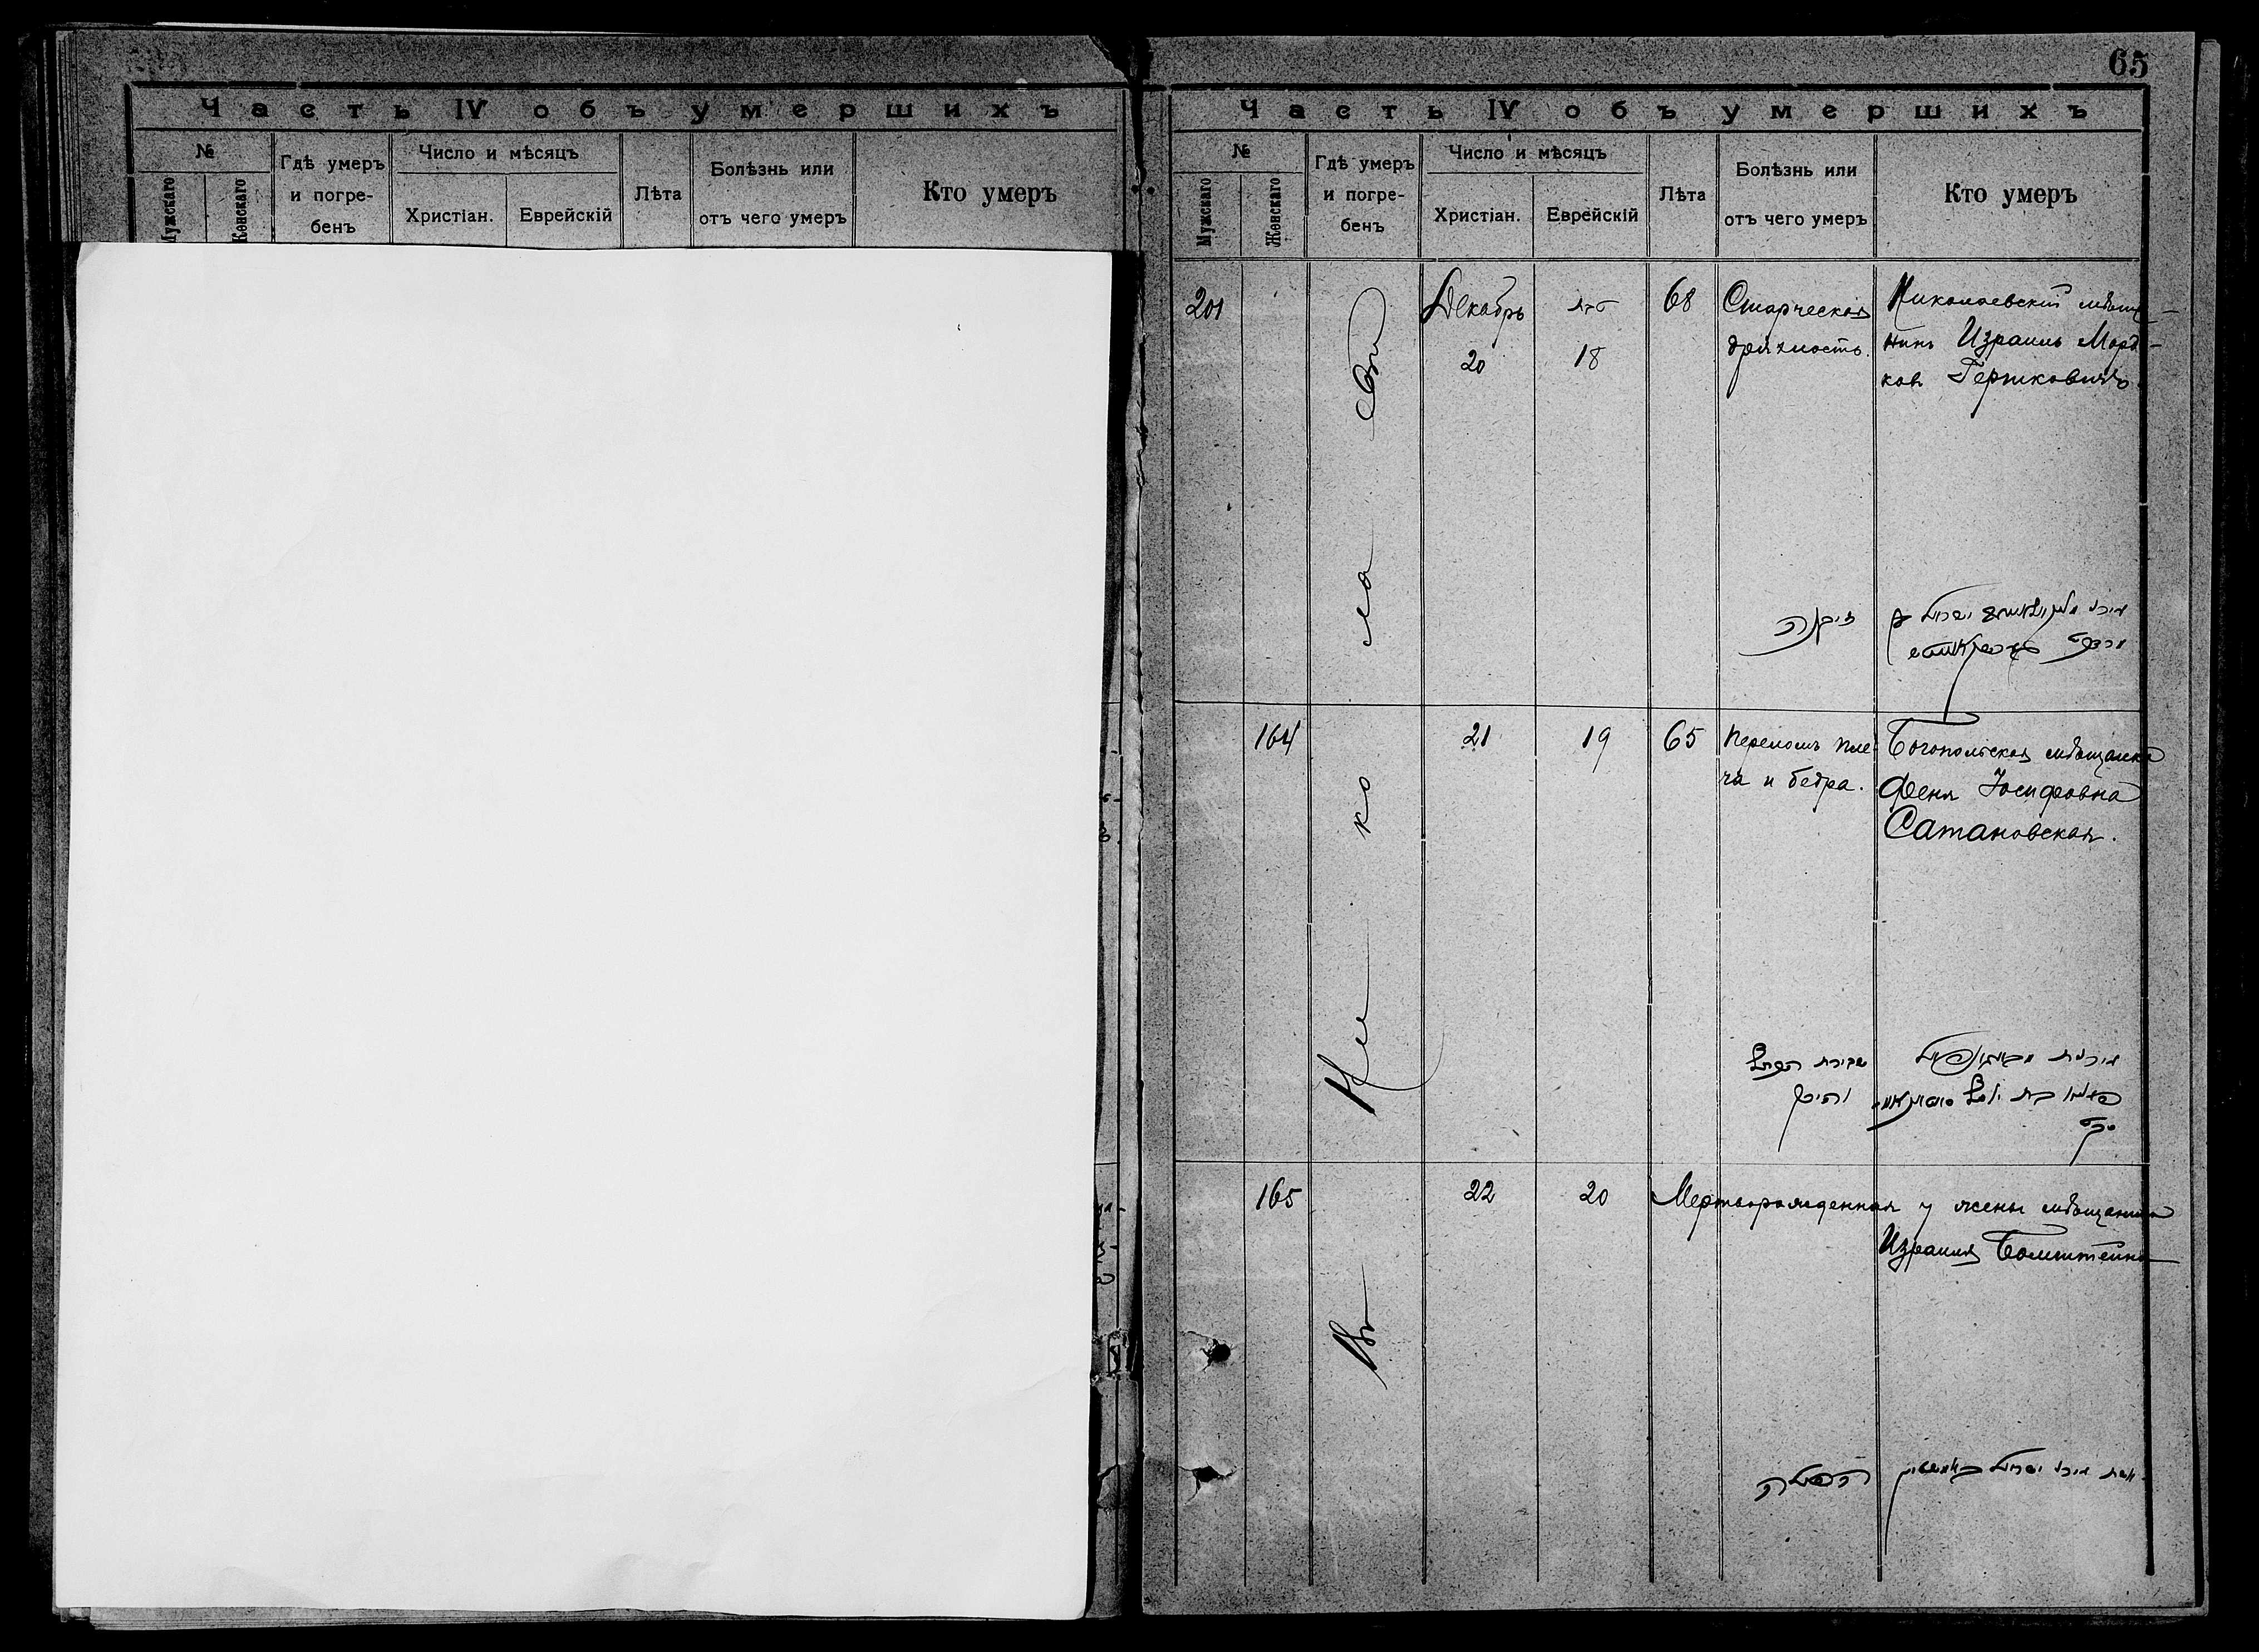 65
Часть IV объ умершихъ
№
Гдѣ умеръ
и погре-
бенъ
Число и мѣсяцъ
Христіан.
Еврейскій
Лѣта
Болѣзнь или
отъ чего умеръ
Кто умеръ
Часть IV объ умершихъ
№
Мужскаго
Женскаго
Гдѣ умеръ
и погре-
бенъ
Число и мѣсяцъ
Христіан.
Еврейскій
Лѣта
Болѣзнь или
отъ чего умеръ
Кто умеръ
201
Декабрь
20
טבת
18
68
Старческая
дряхлость.
Николаевскій мѣща-
нинъ Израиль Морд-
ковъ Гершковичъ
זיקנה
164
21
19
65
Переломъ пле-
ча и бедра.
Богопольская мѣщанка
Феня Іосифовна
Сатановская.
165
22
20
Мертворожденная у жены мѣщанина
Израиля
הפילה
Въ Ни ко ла